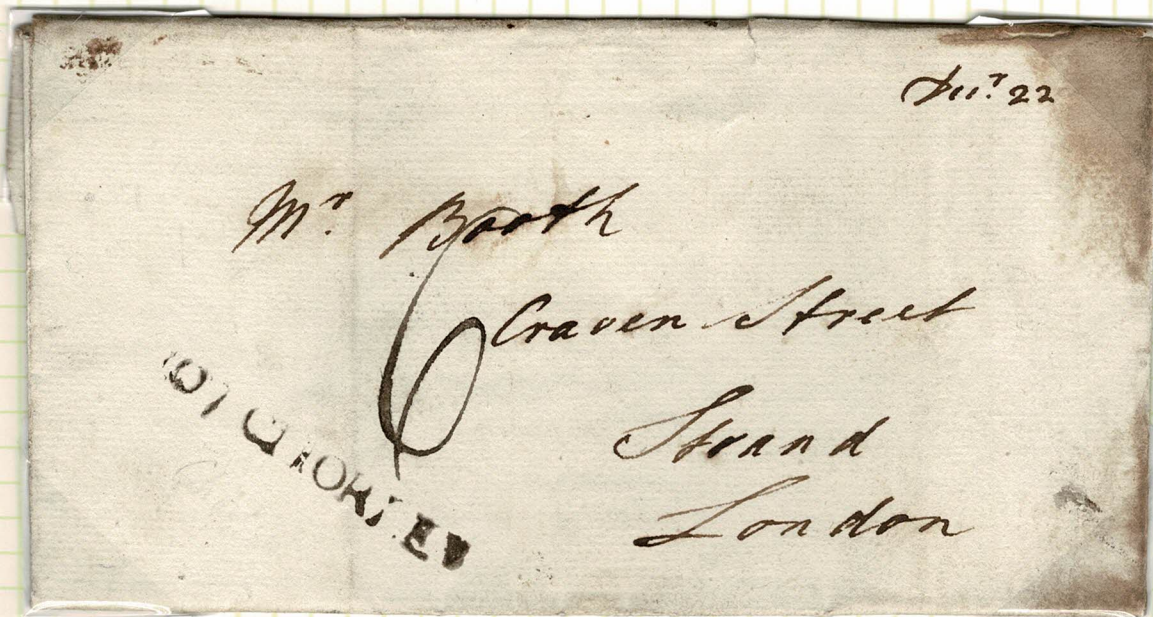 Decr. 22
Mr. Booth
6
Craven Street
Strand
London
CHORLEY